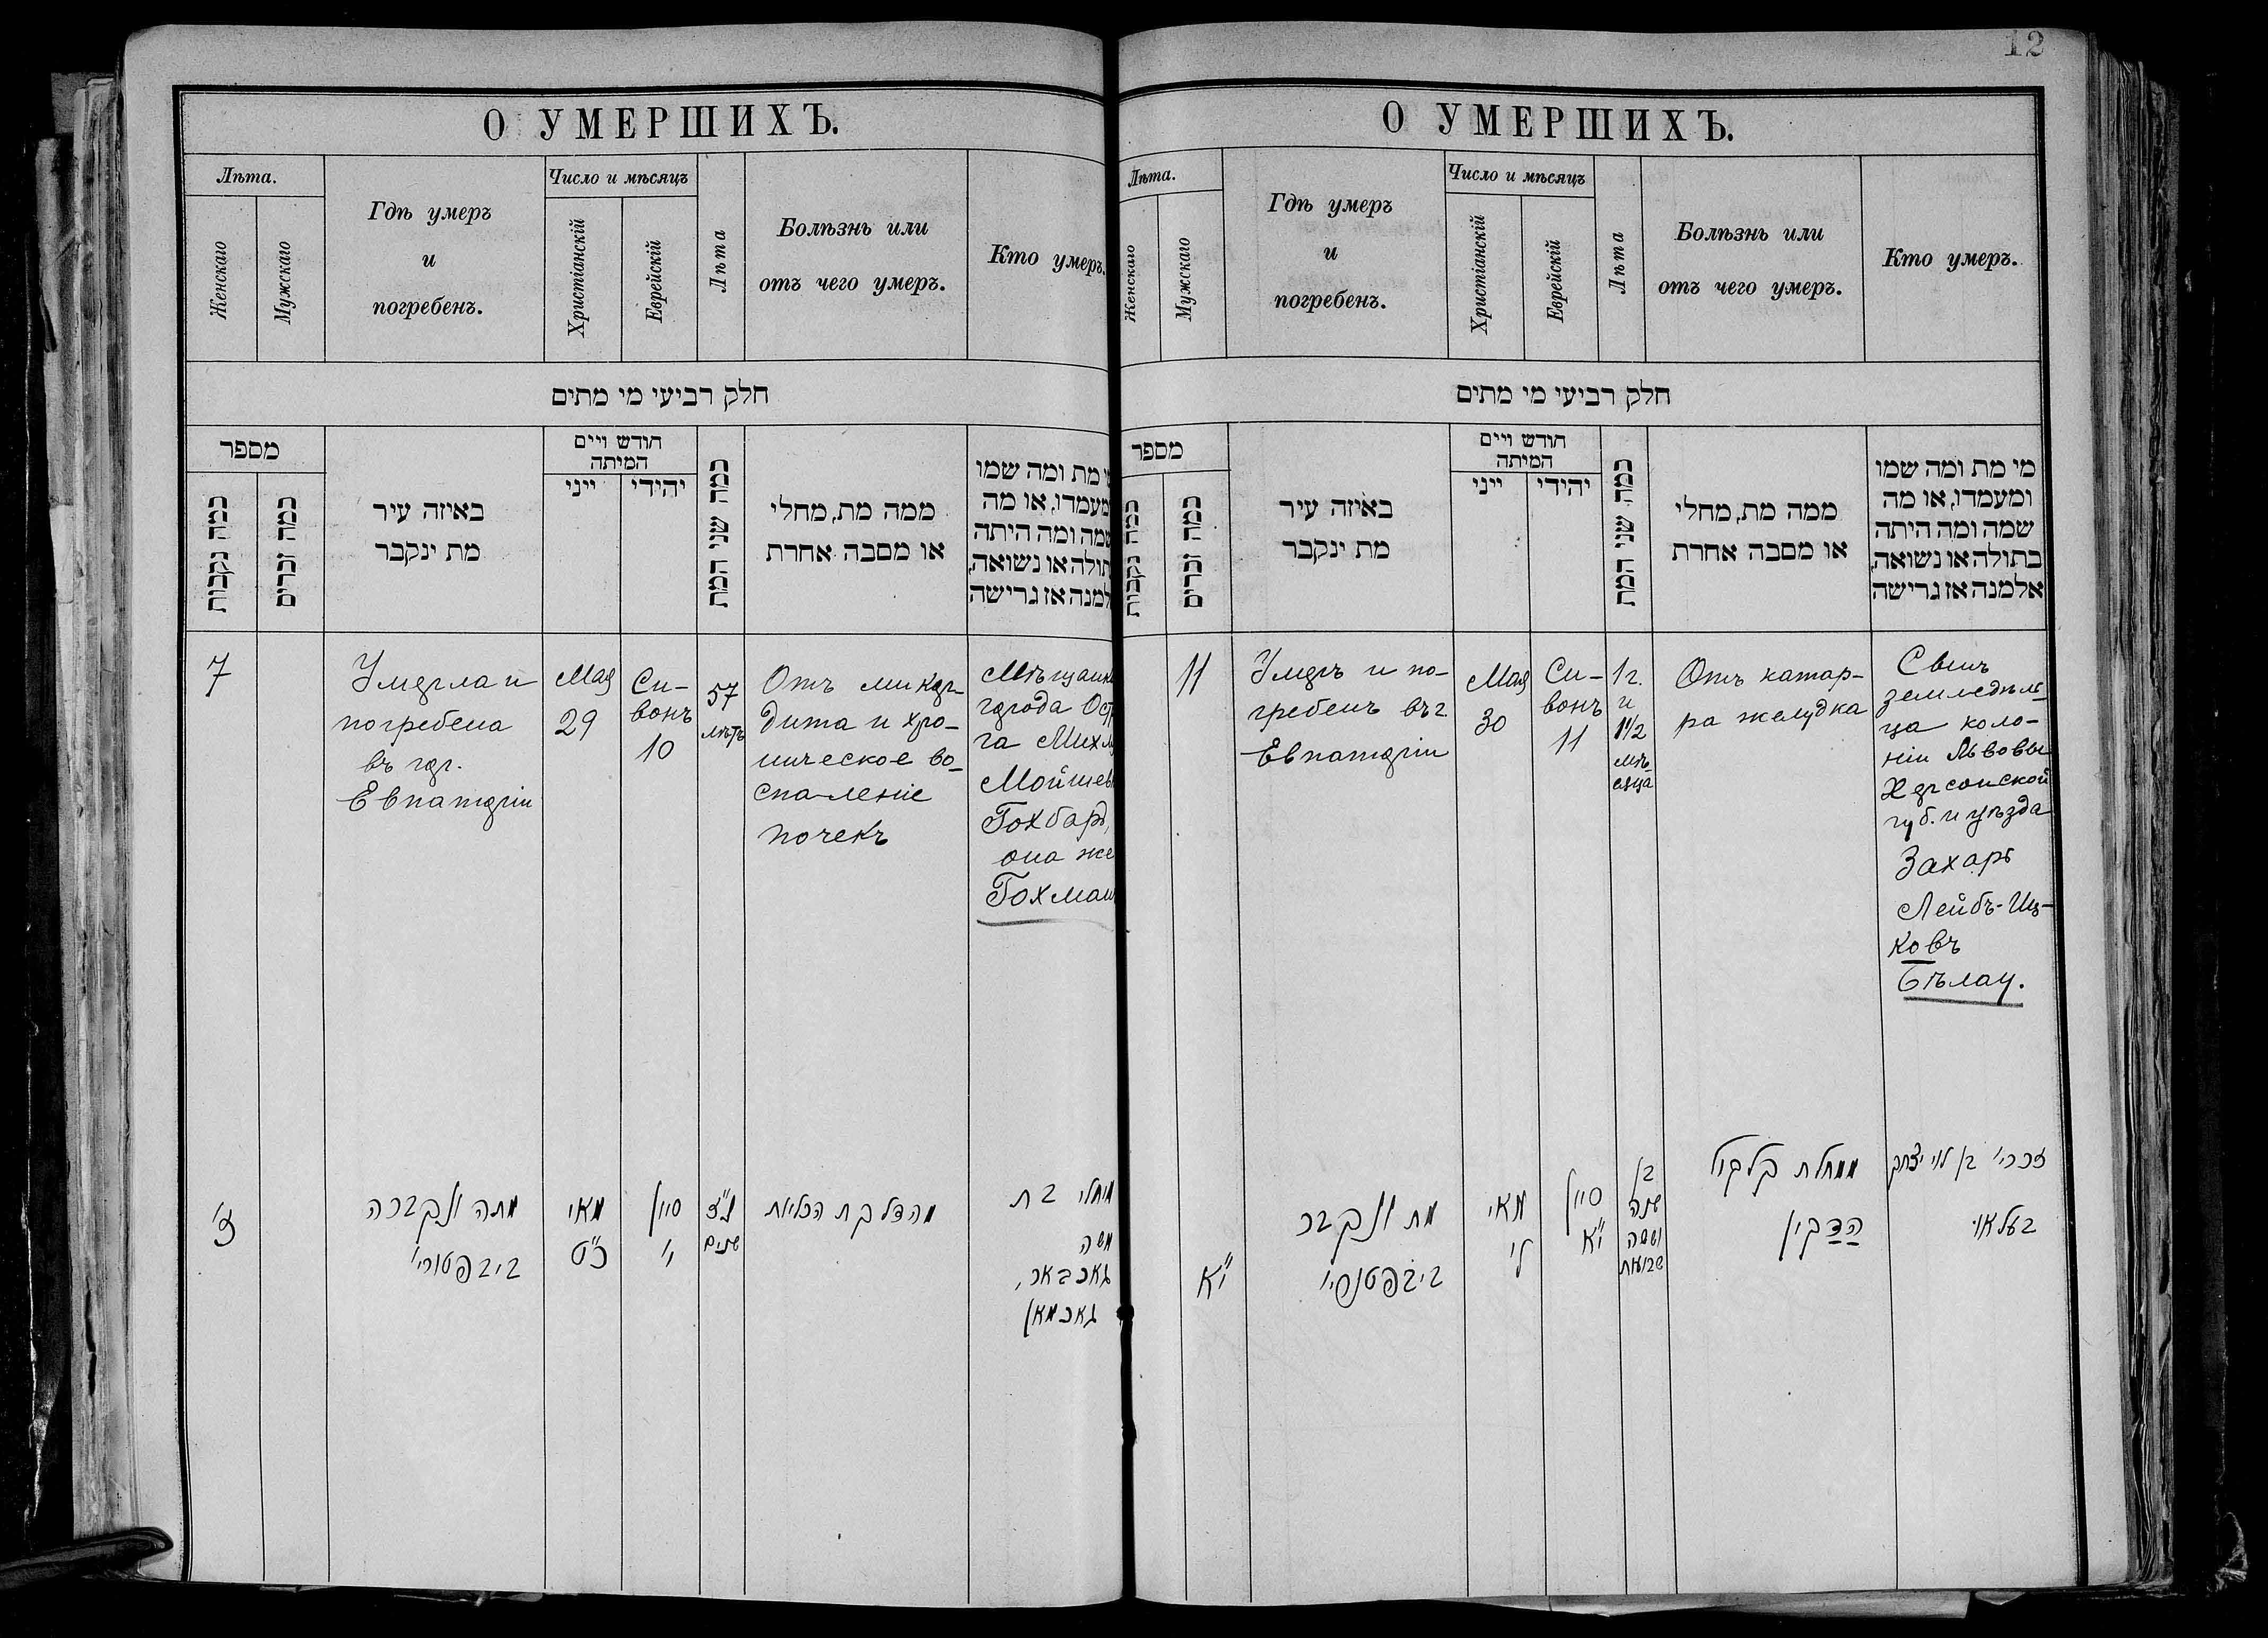 12
О УМЕРШИХЪ.
Лѣта.
Женскаго
Мужскаго
Гдѣ умеръ
и
погребенъ.
Число и мѣсяцъ
Христіанскій
Еврейскій
Лѣта
Болѣзнь или
отъ чего умеръ.
Кто умеръ.
חלק רביעי מי מתים
מספר
כמה נקבות
כמה זכרים
באיזה עיר
מת ינקבר
חודש ויים
המיתה
ייני
יהודי
כמה שני המת
ממה מת, מחלי
או מסבה אחרת
מת ומה שמו
ומעמדו, או מה
שמה ומה היתה
תולה או נשואה,
למנה אז גרישה
7
Умерла и
погребена
въ гор.
Евпаторіи
Мая
29
Си-
вонъ
10
57
лѣтъ
Отъ миокар-
дита и хро-
ническое во-
спаленіе
почекъ
Мѣщанк
города Ост
га Михл
Мойшев
Гохбарг,
она же
Гохман
ז'
מתה ונקברה
ביבפטורי'
מאי
כ"ט
סיון
י'
נ"ז
שנים
מהדלקת הכליות
מיחלי בת
משה
גאכבאר,
גאכמאן
О УМЕРШИХЪ.
Лѣта.
Женскаго
Мужскаго
Гдѣ умеръ
и
погребенъ.
Число и мѣсяцъ
Христіанскій
Еврейскій
Лѣта
Болѣзнь или
отъ чего умеръ.
Кто умеръ.
חלק רביעי מי מתים
מספר
כמה נקבות
כמה זכרים
באיזה עיר
מת ינקבר
חודש ויים
המיתה
ייני
יהודי
כמה שני המת
ממה מת, מחלי
או מסבה אחרת
מי מת ומה שמו
ומעמדו, או מה
שמה ומה היתה
בתולה או נשואה,
אלמנה אז גרישה
11
Умеръ и по-
гребенъ въ г.
Евпаторіи
Мая
30
Си-
вонъ
11
1 г.
и
1 1/2
мѣ-
сяца
Отъ катар-
ра желудка
Сынъ
земледѣль-
ца коло-
ніи Львовы
Херсонской
губ. и уѣзда
Захаръ
Лейбъ-Иц-
ковъ
Бѣлау.
י"א
מת ונקבר
מאי
ל'
סיון
י"א
בן
שנה
וששה
שבועות
ממחלת קלקול
זכרי' בן לוי יצחק
בעלאוי